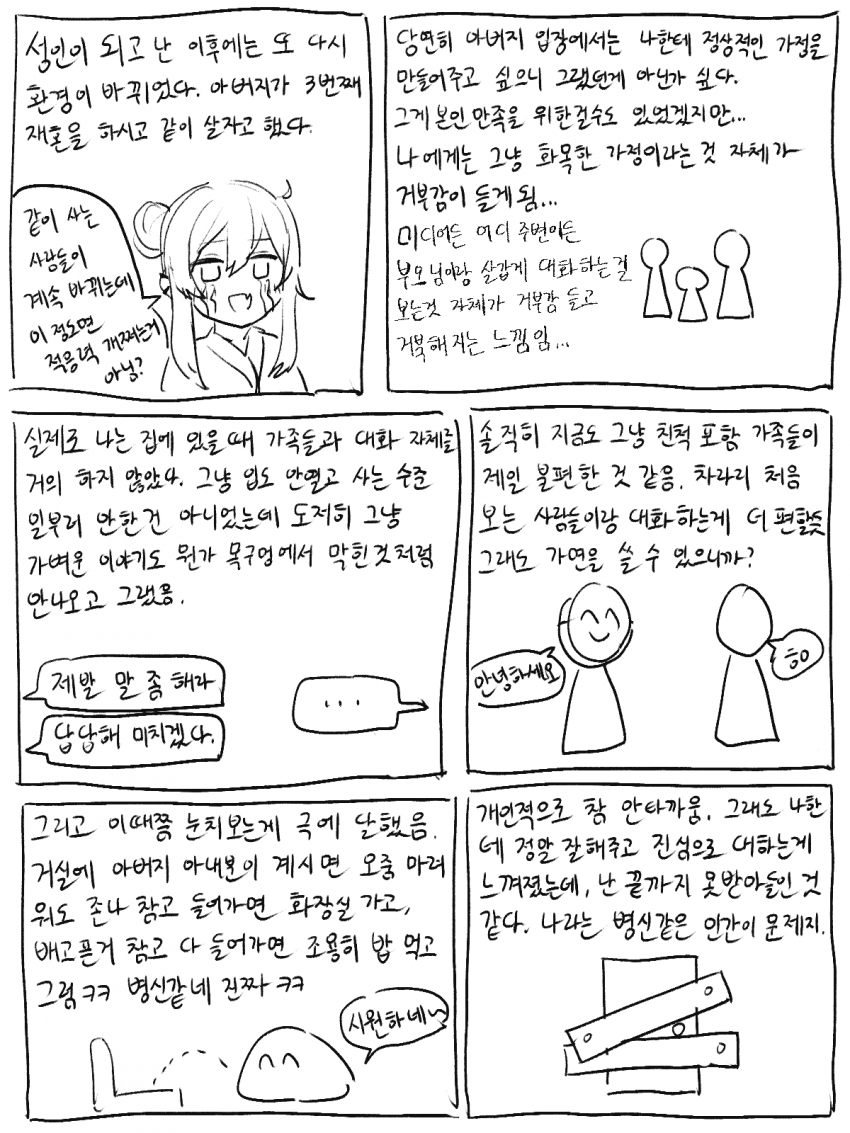 성인이 되고 난 이후에는 또 다시
환경이 바뀌었다. 아버지가 3번째
재혼을 하시고 같이 살자고 했다.
같이 사는
사람들이
계속 바뀌는데
이 정도면
적응력 개쩌는거
아님?
당연히 아버지 입장에서는 나한테 정상적인 가정을
만들어주고 싶으니 그랬던게 아닌가 싶다.
그게 본인 만족을 위한걸수도 있었겠지만...
나에게는 그냥 화목한 가정이라는 것 자체가
거부감이 들게 됨...
미디어든 어디 주변이든
부모님이랑 살갑게 대화하는걸
보는것 자체가 거부감 들고
거북해지는 느낌임...
실제로 나는 집에 있을때 가족들과 대화 자체를
거의 하지 않았다. 그냥 입도 안열고 사는 수준
일부러 안한건 아니었는데 도저히 그냥
가벼운 이야기도 뭔가 목구멍에서 막힌것처럼
안나오고 그랬음.
제발 말 좀 해라
답답해 미치겠다.
...
솔직히 지금도 그냥 친척 포함 가족들이
제일 불편한 것 같음. 차라리 처음
보는 사람들이랑 대화하는게 더 편할듯
그래도 가면을 쓸 수 있으니까?
안녕하세요
ㅎㅇ
그리고 이때쯤 눈치보는게 극에 달했음.
거실에 아버지 아내분이 계시면 오줌 마려
워도 존나 참고 들어가면 화장실 가고,
배고픈거 참고 다 들어가면 조용히 밥 먹고
그럼ㅋㅋ 병신같네 진짜 ㅋㅋ
시원하네~
개인적으로 참 안타까움. 그래도 나한
테 정말 잘해주고 진심으로 대하는게
느껴졌는데, 난 끝까지 못받아들인 것
같다. 나라는 병신같은 인간이 문제지.